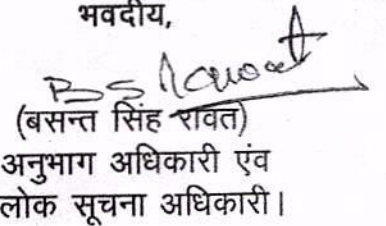 भवदीय,
BS Rawat
(बसन्त सिंह रावत)
अनुभाग अधिकारी एंव
लोक सूचना अधिकारी।